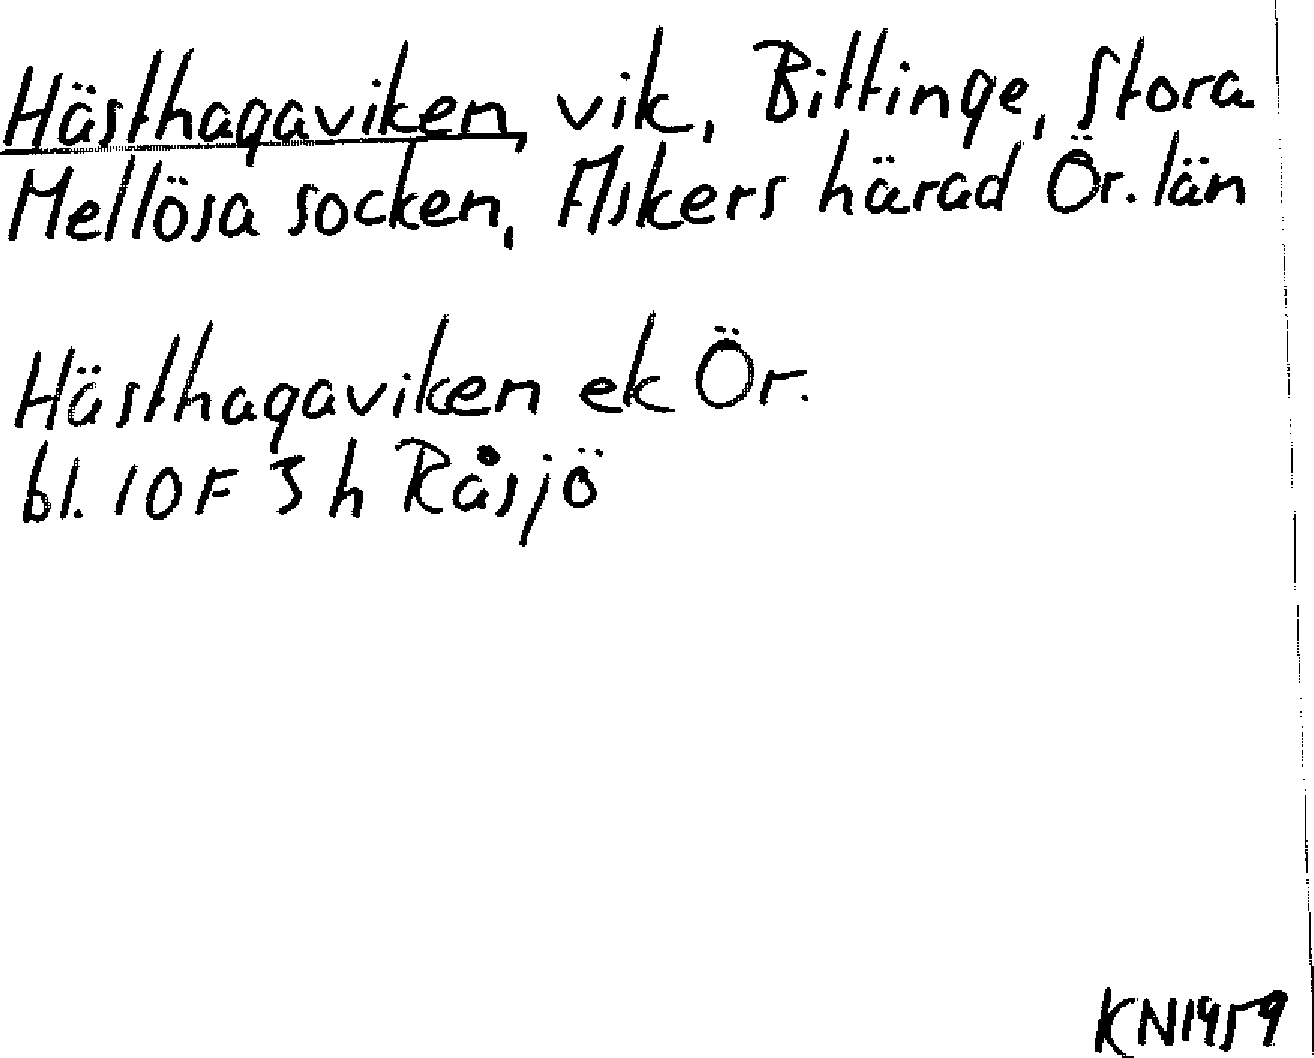 Hästhagaviken, vik, Bittinge, Stora
Mellösa socken, Askers härad Ör. län
Hästhagaviken ek Ör.
bl. 10F 3h Råsjö
KN1959